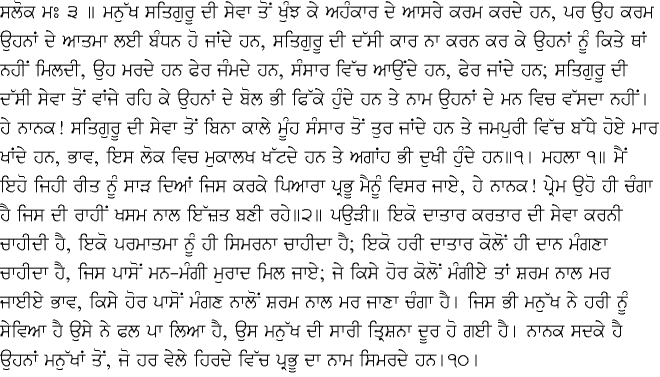 ਸਲੋਕ ਮਃ ੩ ॥ ਮਨੁੱਖ ਸਤਿਗੁਰੂ ਦੀ ਸੇਵਾ ਤੋਂ ਖੁੰਝ ਕੇ ਅਹੰਕਾਰ ਦੇ ਆਸਰੇ ਕਰਮ ਕਰਦੇ ਹਨ, ਪਰ ਉਹ ਕਰਮ
ਉਹਨਾਂ ਦੇ ਆਤਮਾ ਲਈ ਬੰਧਨ ਹੋ ਜਾਂਦੇ ਹਨ, ਸਤਿਗੁਰੂ ਦੀ ਦੱਸੀ ਕਾਰ ਨਾ ਕਰਨ ਕਰ ਕੇ ਉਹਨਾਂ ਨੂੰ ਕਿਤੇ ਥਾਂ
ਨਹੀਂ ਮਿਲਦੀ, ਉਹ ਮਰਦੇ ਹਨ ਫੇਰ ਜੰਮਦੇ ਹਨ, ਸੰਸਾਰ ਵਿੱਚ ਆਉਂਦੇ ਹਨ, ਫੇਰ ਜਾਂਦੇ ਹਨ; ਸਤਿਗੁਰੂ ਦੀ
ਦੱਸੀ ਸੇਵਾ ਤੋਂ ਵਾਂਜੇ ਰਹਿ ਕੇ ਉਹਨਾਂ ਦੇ ਬੋਲ ਭੀ ਫਿੱਕੇ ਹੁੰਦੇ ਹਨ ਤੇ ਨਾਮ ਉਹਨਾਂ ਦੇ ਮਨ ਵਿਚ ਵੱਸਦਾ ਨਹੀਂ।
ਹੇ ਨਾਨਕ! ਸਤਿਗੁਰੂ ਦੀ ਸੇਵਾ ਤੋਂ ਬਿਨਾ ਕਾਲੇ ਮੂੰਹ ਸੰਸਾਰ ਤੋਂ ਤੁਰ ਜਾਂਦੇ ਹਨ ਤੇ ਜਮਪੁਰੀ ਵਿੱਚ ਬੱਧੇ ਹੋਏ ਮਾਰ
ਖਾਂਦੇ ਹਨ, ਭਾਵ, ਇਸ ਲੋਕ ਵਿਚ ਮੁਕਾਲਖ ਖੱਟਦੇ ਹਨ ਤੇ ਅਗਾਂਹ ਭੀ ਦੁਖੀ ਹੁੰਦੇ ਹਨ॥੧। ਮਹਲਾ ੧॥ ਮੈਂ
ਇਹੋ ਜਿਹੀ ਰੀਤ ਨੂੰ ਸਾੜ ਦਿਆਂ ਜਿਸ ਕਰਕੇ ਪਿਆਰਾ ਪ੍ਰਭੂ ਮੈਨੂੰ ਵਿਸਰ ਜਾਏ, ਹੇ ਨਾਨਕ! ਪ੍ਰੇਮ ਉਹੋ ਹੀ ਚੰਗਾ
ਹੈ ਜਿਸ ਦੀ ਰਾਹੀਂ ਖਸਮ ਨਾਲ ਇੱਜ਼ਤ ਬਣੀ ਰਹੇ॥੨॥ ਪਉੜੀ॥ ਇਕੋ ਦਾਤਾਰ ਕਰਤਾਰ ਦੀ ਸੇਵਾ ਕਰਨੀ
ਚਾਹੀਦੀ ਹੈ, ਇਕੋ ਪਰਮਾਤਮਾ ਨੂੰ ਹੀ ਸਿਮਰਨਾ ਚਾਹੀਦਾ ਹੈ; ਇਕੋ ਹਰੀ ਦਾਤਾਰ ਕੋਲੋਂ ਹੀ ਦਾਨ ਮੰਗਣਾ
ਚਾਹੀਦਾ ਹੈ, ਜਿਸ ਪਾਸੋਂ ਮਨ-ਮੰਗੀ ਮੁਰਾਦ ਮਿਲ ਜਾਏ; ਜੇ ਕਿਸੇ ਹੋਰ ਕੋਲੋਂ ਮੰਗੀਏ ਤਾਂ ਸ਼ਰਮ ਨਾਲ ਮਰ
ਜਾਈਏ ਭਾਵ, ਕਿਸੇ ਹੋਰ ਪਾਸੋਂ ਮੰਗਣ ਨਾਲੋਂ ਸ਼ਰਮ ਨਾਲ ਮਰ ਜਾਣਾ ਚੰਗਾ ਹੈ। ਜਿਸ ਭੀ ਮਨੁੱਖ ਨੇ ਹਰੀ ਨੂੰ
ਸੇਵਿਆ ਹੈ ਉਸੇ ਨੇ ਫਲ ਪਾ ਲਿਆ ਹੈ, ਉਸ ਮਨੁੱਖ ਦੀ ਸਾਰੀ ਤ੍ਰਿਸ਼ਨਾ ਦੂਰ ਹੋ ਗਈ ਹੈ। ਨਾਨਕ ਸਦਕੇ ਹੈ
ਉਹਨਾਂ ਮਨੁੱਖਾਂ ਤੋਂ, ਜੋ ਹਰ ਵੇਲੇ ਹਿਰਦੇ ਵਿੱਚ ਪ੍ਰਭੂ ਦਾ ਨਾਮ ਸਿਮਰਦੇ ਹਨ।੧੦।